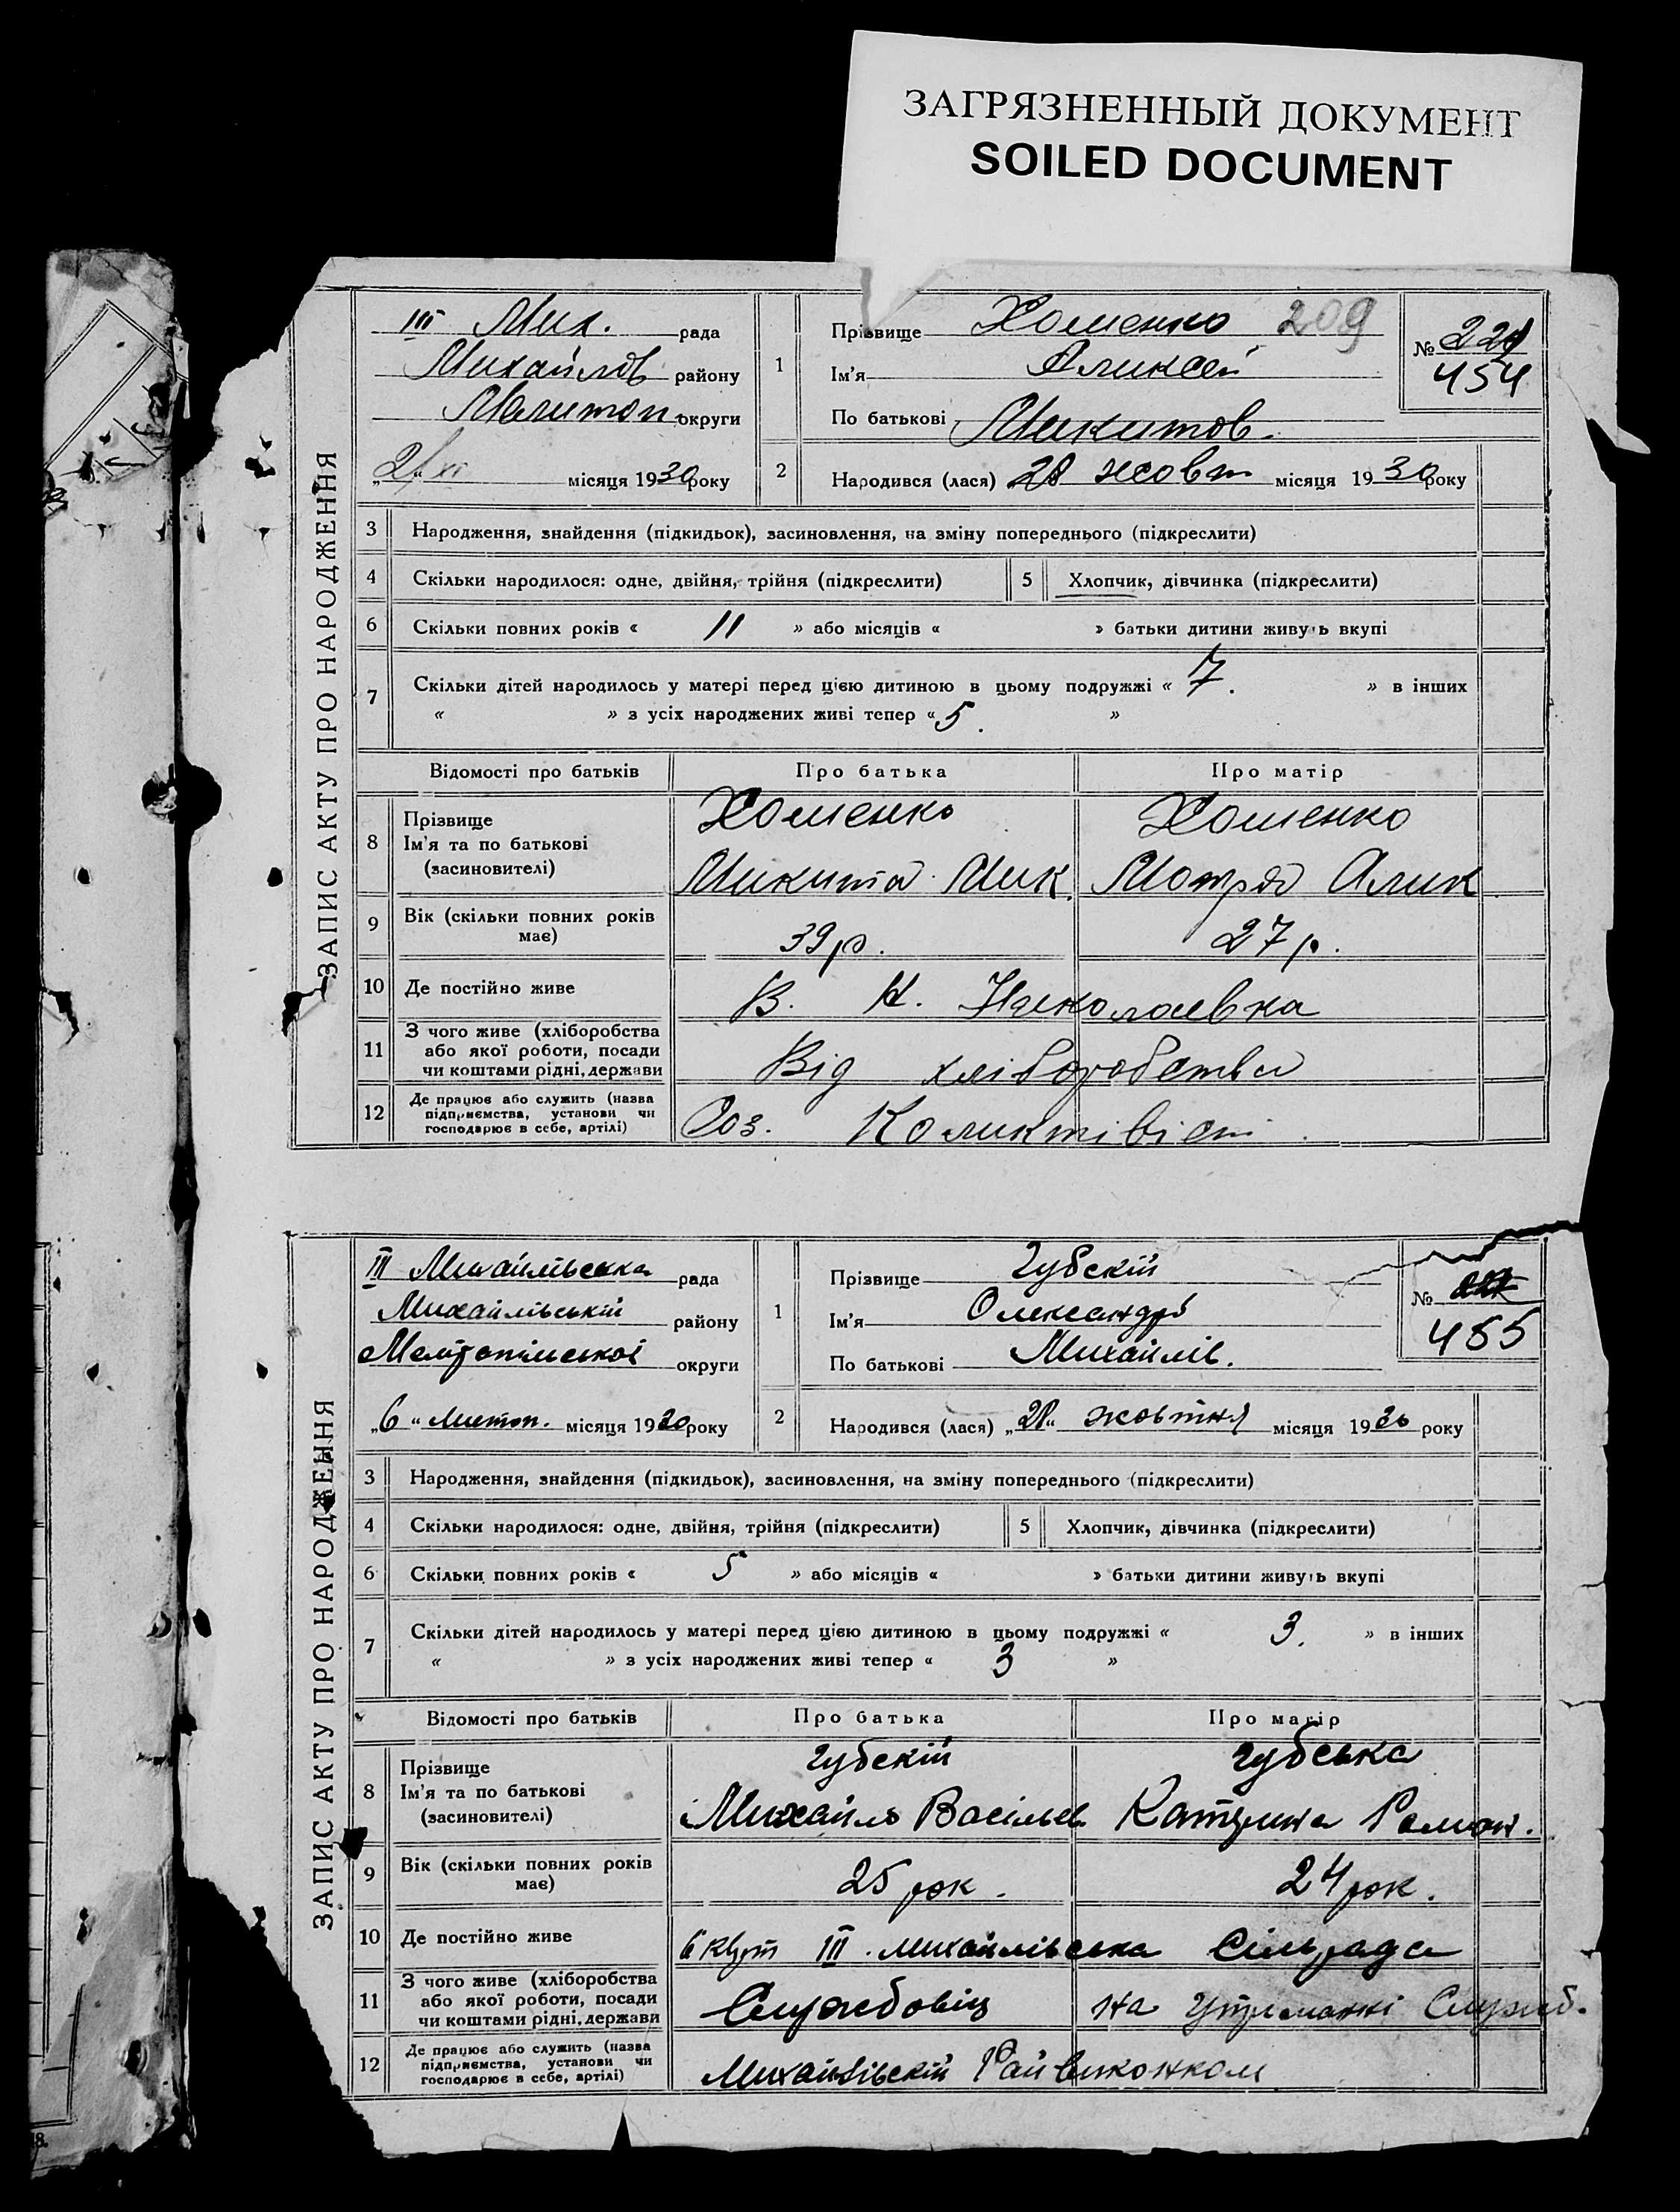 ЗАГРЯЗНЕННЫЙ ДОКУМЕНТ
SOILED DOCUMENT
ЗАПИС АКТУ ПРО НАРОДЖЕННЯ
III Мих. рада
Михайлов району
Мелитоп. округи
місяця 1930 року
1
Прізвище Хоменко 209
Ім'я Аликсей
По батькові Микитов.
№
454
2
Народився (лася) 28 жовт місяця 1930 року
3 Народження, знайдення (підкидьок), засиновлення, на зміну попереднього (підкреслити)
4 Скільки народилося: одне, двійня, трійня (підкреслити) 5 Хлопчик, дівчинка (підкреслити)
6 Скільки повних років « 11 » або місяців « » батьки дитини живуть вкупі
7 Скільки дітей народилось у матері перед цією дитиною в цьому подружжі « 7. » в інших
« » з усіх народжених живі тепер « 5. »
Відомості про батьків Про батька Про матір
8 Прізвище Ім'я та по батькові (засиновителі)
Хоменко Хоменко
Микита Мик. Мотря Алик
9 Вік (скільки повних років має) 39 р. 27 р.
10 Де постійно живе В. Николаевка
11 З чого живе (хліборобства або якої роботи, посади чи коштами рідні, держави Від хліборобства
12 Де працює або служить (назва підприємства, установи чи господарює в себе, артілі) Коликтивіст
ЗАПИС АКТУ ПРО НАРОДЖЕННЯ
III Михайлівська рада
Михайлівській району
Мелітопільської округи
„6“ листоп. місяця 1930 року
1
Прізвище Губскій
Ім'я Олександр
По батькові Михайлів.
№
455
2
Народився (лася) „28“ жовтня місяця 1930 року
3 Народження, знайдення (підкидьок), засиновлення, на зміну попереднього (підкреслити)
4 Скільки народилося: одне, двійня, трійня (підкреслити) 5 Хлопчик, дівчинка (підкреслити)
6 Скільки повних років « 5 » або місяців « » батьки дитини живуть вкупі
7 Скільки дітей народилось у матері перед цією дитиною в цьому подружжі « 3. » в інших
« » з усіх народжених живі тепер « 3 »
Відомості про батьків Про батька Про матір
8 Прізвище Ім'я та по батькові (засиновителі)
Губскій Губська
Михайло Васільев Катерина Роман.
9 Вік (скільки повних років має) 25 рок. 24 рок.
10 Де постійно живе 6 кут III Михайлівська Сільрада
11 З чого живе (хліборобства або якої роботи, посади чи коштами рідні, держави Службовіц на Утриманні Служб.
12 Де працює або служить (назва підприємства, установи чи господарює в себе, артілі) Михайлівскій Райвиконком